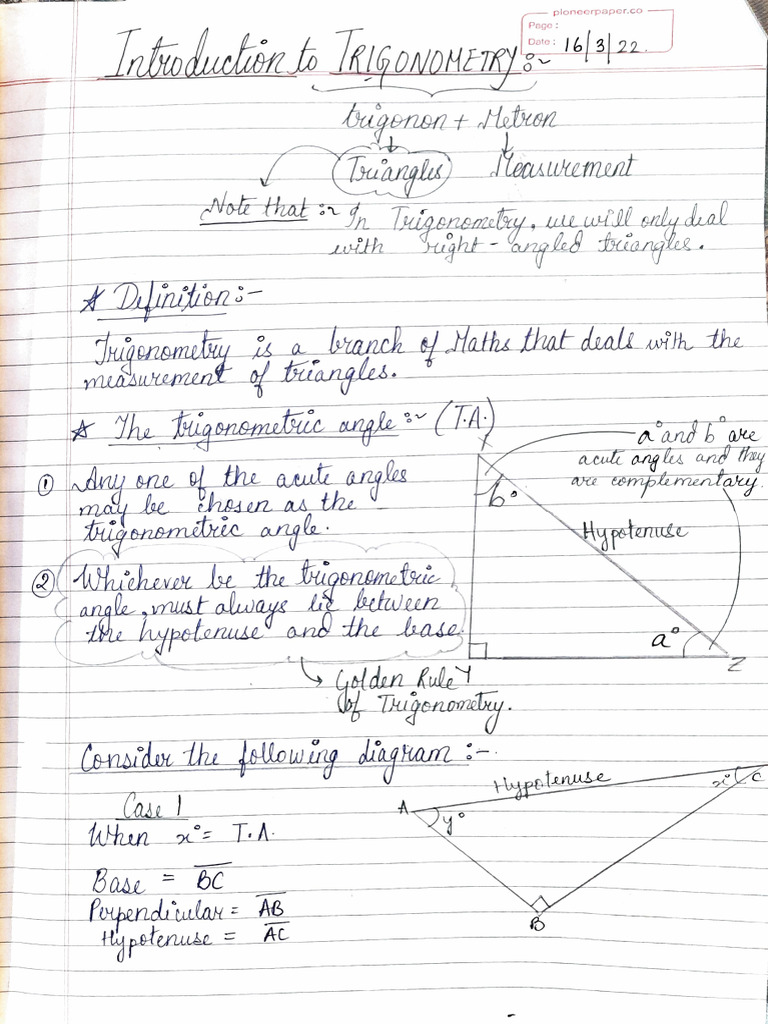 pioneerpaper.co
Page:
Date: 16/3/22.
Introduction to TRIGONOMETRY:~
trigonon + Metron
Triangles Measurement
Note that:~ In Trigonometry, we will only deal
with right-angled triangles.
Definition:-
Trigonometry is a branch of Maths that deals with the
measurement of triangles.
The trigonometric angle:~ (T.A.)
a° and b° are
acute angles and they
are complementary.
① Any one of the acute angles
may be chosen as the
trigonometric angle.
X
b°
Hypotenuse
② Whichever be the trigonometric
angle, must always lie between
the hypotenuse and the base.
a°
Y
Z
Golden Rule
of Trigonometry.
Consider the following diagram:-
Hypotenuse
A
y°
x°
C
B
Case 1
When x° = T.A.
Base = BC
Perpendicular = AB
Hypotenuse = AC